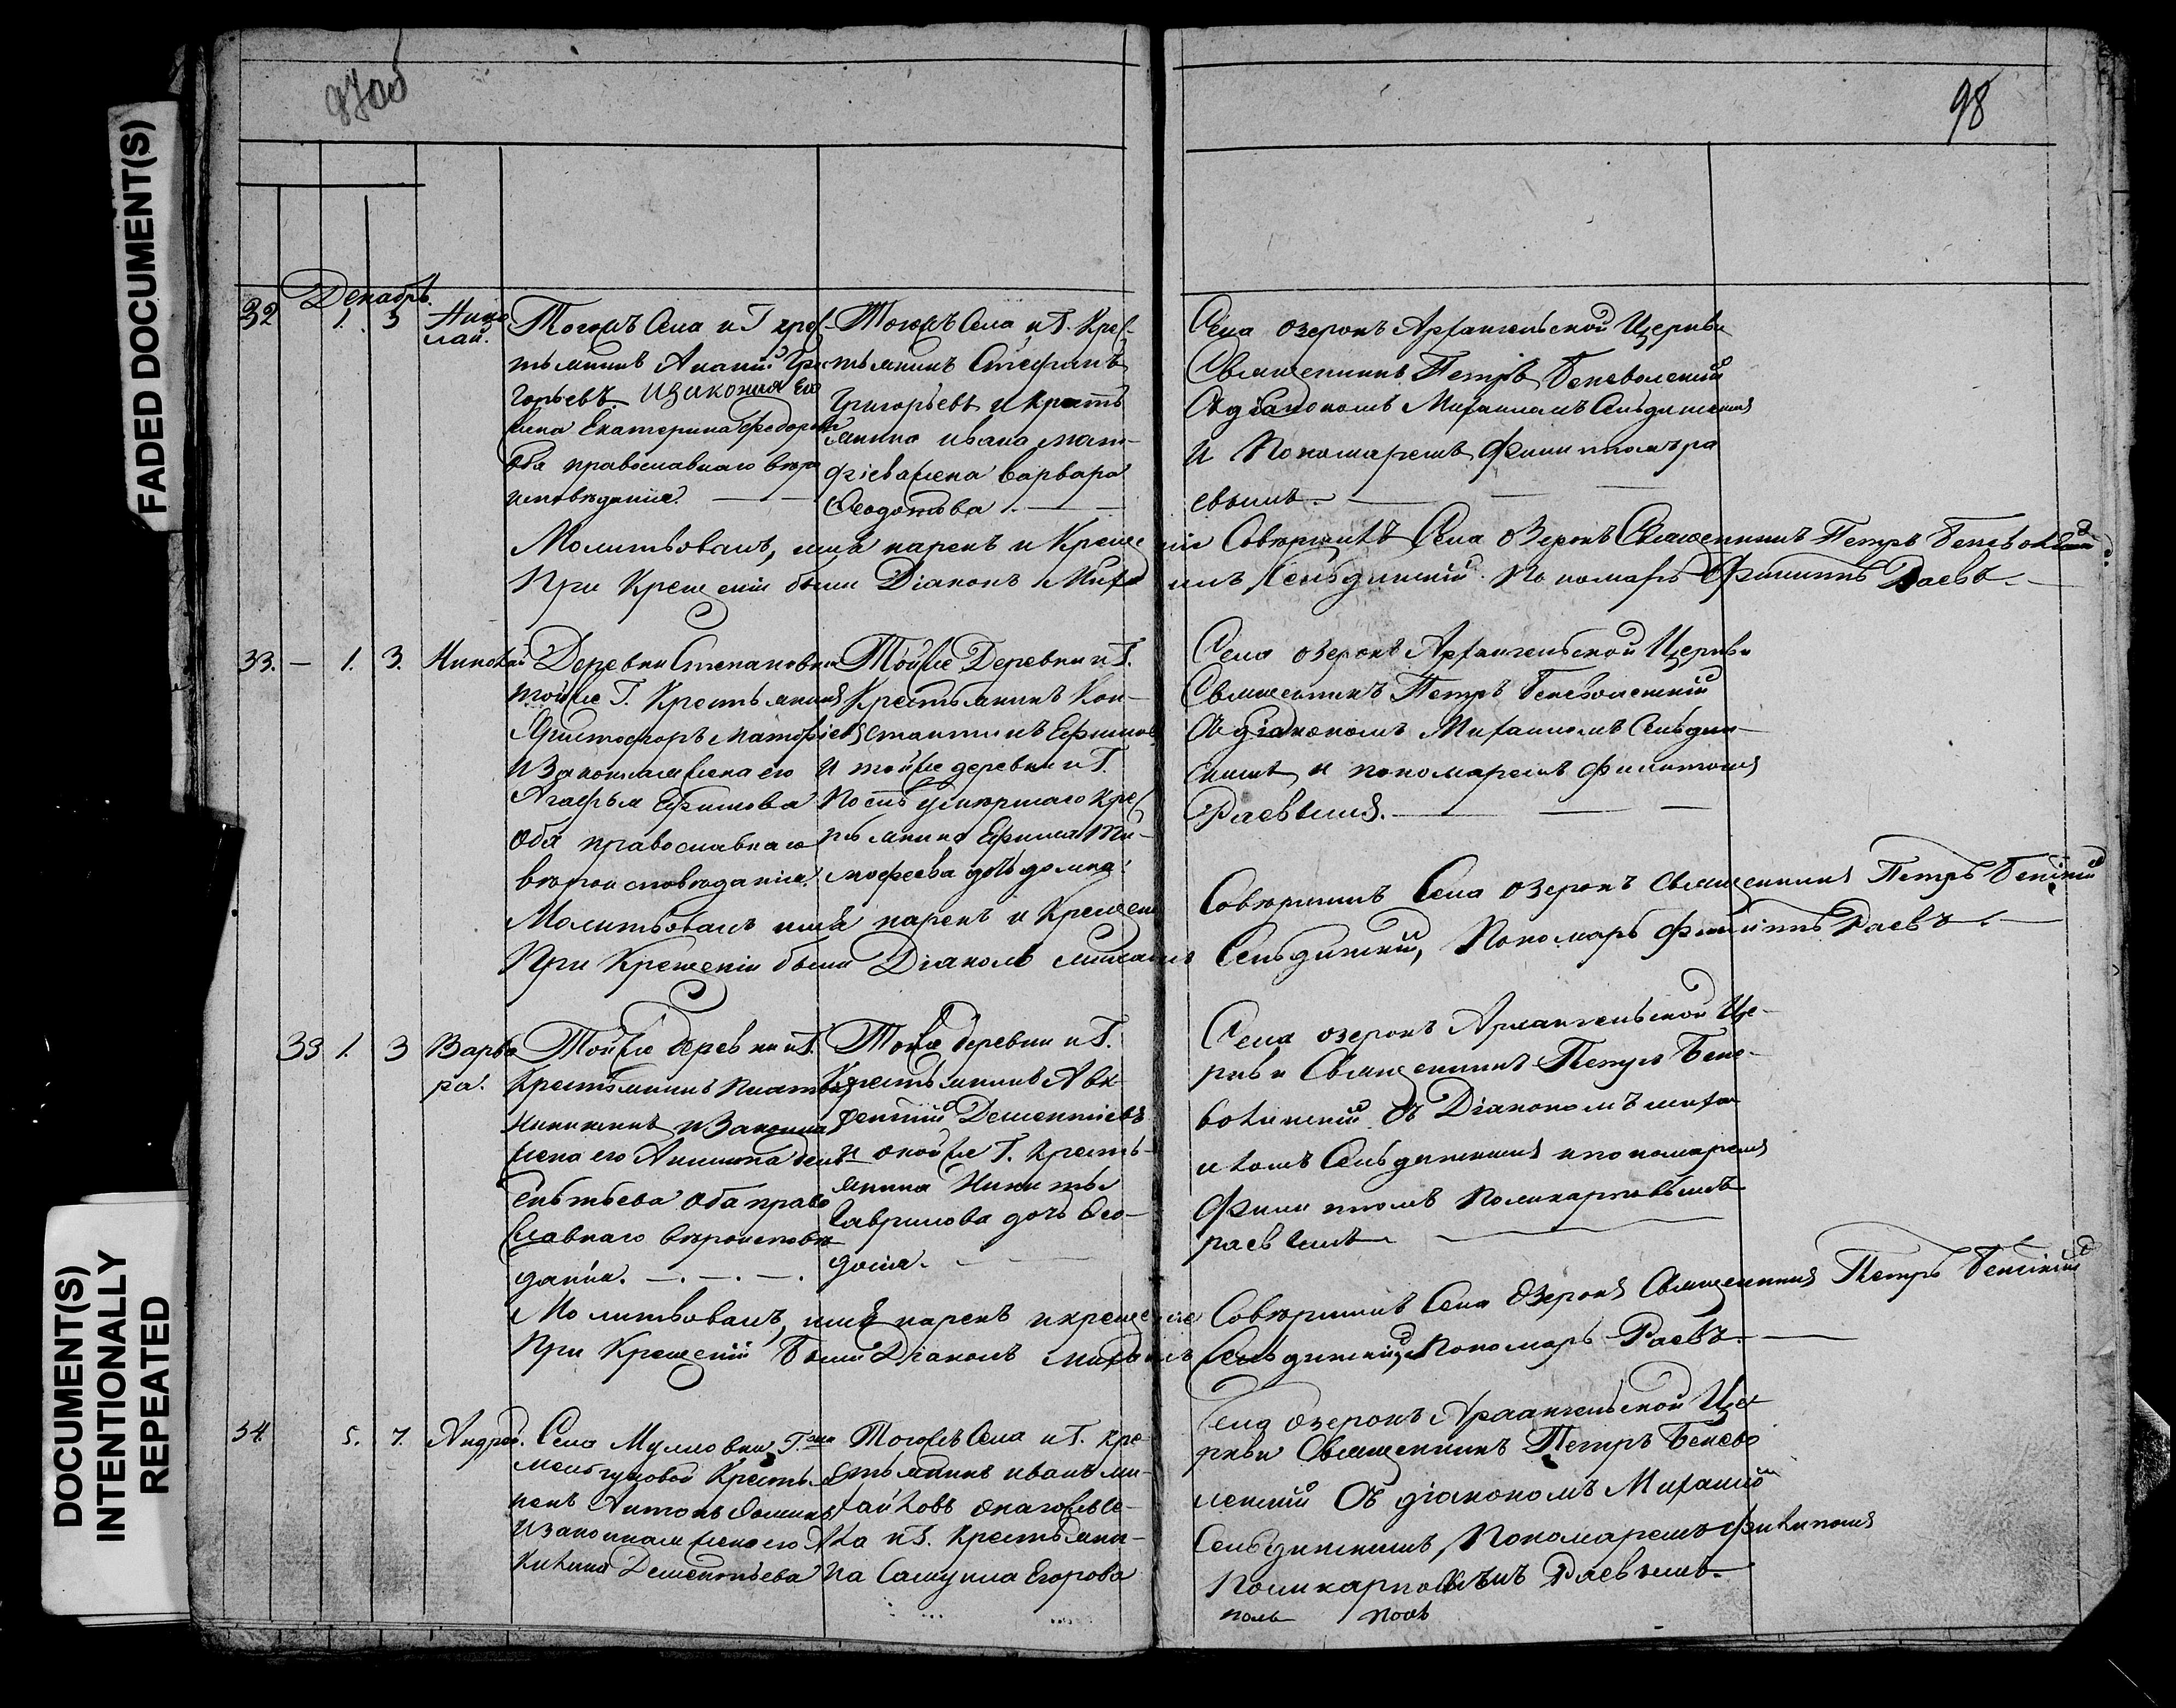 97об
98
FADED DOCUMENT(S)
DOCUMENT(S)
INTENTIONALLY
REPEATED
Декабрь.
32 1. 3 Нико
лай.
Тогожъ Села и Г крес
тьянинъ Ананий Гри
горьевъ. И законная Его
жена Екатерина Федорова
Оба православнаго веро
исповѣдания.
Тогожъ Села и Г. Крес-
тьянинъ Стефанъ
Григорьевъ и Кресть
янина ивана мат-
фiева жена варвара
Феодотова.
Села озерокъ Архангельской Церкви
Священникъ Петръ Беневоленский
Съ дiакономъ Михаиломъ Сельдинскимъ
и Пономаремъ Филиппомъ ра
евымъ.
Молитвовалъ, имя нарекъ и Крещенiе Совершилъ Села Озерокъ Священникъ Петръ Беневоленский
При Крещенiи были Дiаконъ Михаилъ Сельдинский Пономарь Филиппъ Раевъ.
33. — 1. 3. Николай
Деревни Степановки
тойже Г. Крестьянинъ
Христофоръ матфiевъ
И законная жена его
Агафья Ефимова
Оба православнаго
вероисповеданiя.
Тойже Деревни и Г.
Крестьянинъ Кон-
стантинъ Ефимовъ
И тойже деревни и Г.
Кре
тьянина Ефима Ти-
мофеева дочь домна
Села озерокъ Архангельской Церкви
Священникъ Петръ Беневоленский
Съ дiакономъ Михаиломъ Сельдин-
скимъ и пономаремъ Филиппомъ
Раевымъ.
Молитвовалъ имя нарекъ и Крещенiе Совершилъ Села Озерокъ священникъ Петръ
При Крещенiи были Дiаконъ михаилъ Сельдинский, Пономарь Филиппъ Раевъ.
33 1. 3 Варва
ра.
Тойже деревни и Г.
Крестьянинъ
и Законная
жена его
Оба право
славнаго вероисповѣ
данiя.
Тойже деревни и Г.
Крестьянинъ Авк
сентий Дементiевъ
и Г. Кресть-
янина Никиты
Гаврилова дочь Фео-
досiя.
Села озерокъ Архангельской Це-
ркви Священникъ Петръ Бене-
воленский Съ Дiакономъ миха
иломъ Сельдинскимъ и пономаремъ
Филиппомъ Поликарповымъ
раевымъ
Молитвовалъ, имя нарекъ и крещенiе Совершилъ Села Озерокъ Священникъ Петръ
При Крещенiи Были Дiаконъ Михаилъ Сельдинский, Пономарь Раевъ.
34. 5. 7. Андрей.
Села Мулловки, Г-жи
Крестья
нинъ Антонъ
И законная жена его
Дементьева
Тогожъ Села и Г. кре
стьянинъ иванъ ми-
хайловъ
ла и Г. Крестьяни-
на Самуила Егорова
Села Озерокъ Архангельской Це
ркви Священникъ Петръ Бенево
ленский Съ дiакономъ Михаиломъ
Сельдинскимъ, Пономаремъ Филипомъ
Поликарповымъ Раевымъ.